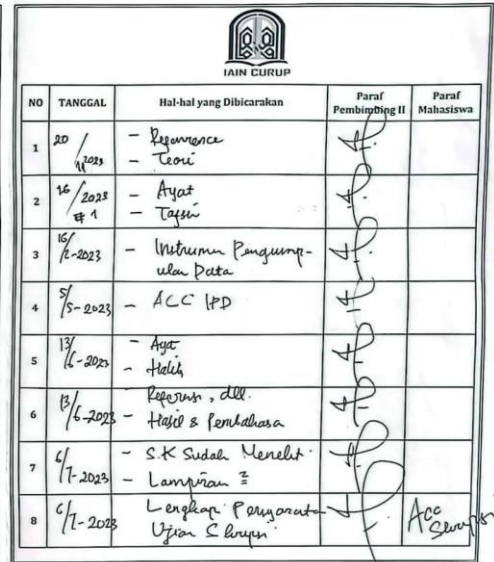 IAIN CURUP
NO TANGGAL Hal-hal yang Dibicarakan Paraf Pembimbing II Paraf Mahasiswa
1 20/11 2023 - 
- Teori
2 16/2023 - Ayat
1 - Tafsir
3 16/2-2023 - Instrumen Pengump-
ulan Data
4 5/5-2023 - ACC IPD
5 13/6-2023 - Ayat
- Hadis
6 13/6-2023 Referensi, dll.
- Hasil & Pembahasa
7 6/7-2023 - S.K Sudah Menelit
- Lampiran
8 6/7-2023 Lengkapi Persyarata
Ujian Skripsi
Acc
Skripsi